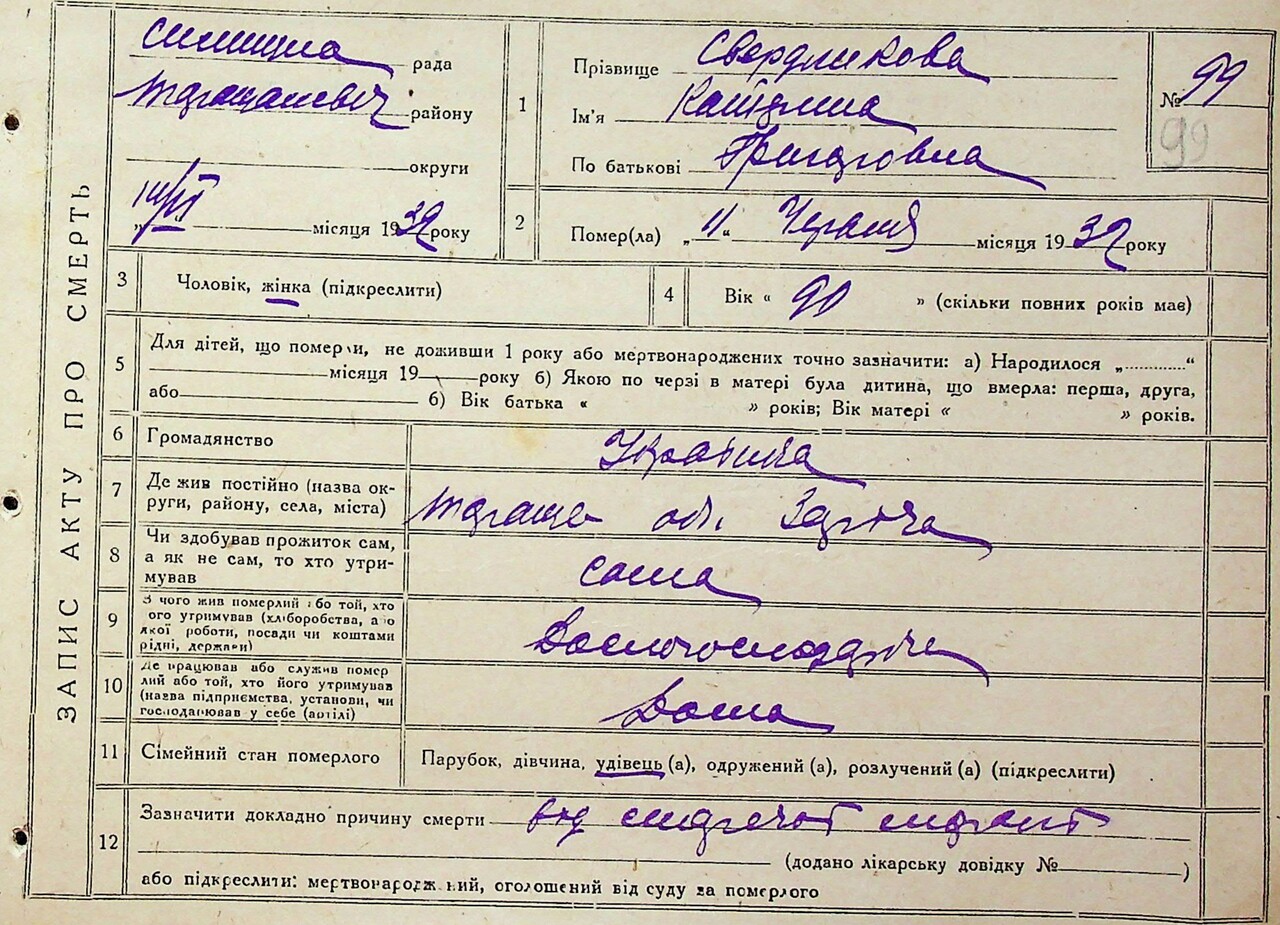 ЗАПИС АКТУ ПРО СМЕРТЬ
рада
району
округи
14/VI місяця 1932 року
1
Прізвище Свердликова
Ім'я Катерина
По батькові Григоровна
№ 99
99
2
Помер(ла) „11“ Червня місяця 1932 року
3
Чоловік, жінка (підкреслити)
4
Вік « 90 » (скільки повних років має)
5
Для дітей, що померли, не доживши 1 року або мертвонароджених точно зазначити: а) Народилося „.............“
місяця 19 року б) Якою по черзі в матері була дитина, що вмерла: перша, друга,
або б) Вік батька « » років; Вік матері « » років.
6
Громадянство
Українка
7
Де жив постійно (назва ок-
руги, району, села, міста)
8
Чи здобував прожиток сам,
а як не сам, то хто утри-
мував
сама
9
З чого жив померлий або той, хто
його утримував (хліборобства, або
якої роботи, посади чи коштами
рідні, держави)
10
Де працював або служив помер
лий або той, хто його утримував
(назва підприємства, установи, чи
господарював у себе (артілі)
Дома
11
Сімейний стан померлого
Парубок, дівчина, удівець (а), одружений (а), розлучений (а) (підкреслити)
12
Зазначити докладно причину смерти від
(додано лікарську довідку № )
або підкреслити: мертвонароджений, оголошений від суду за померлого